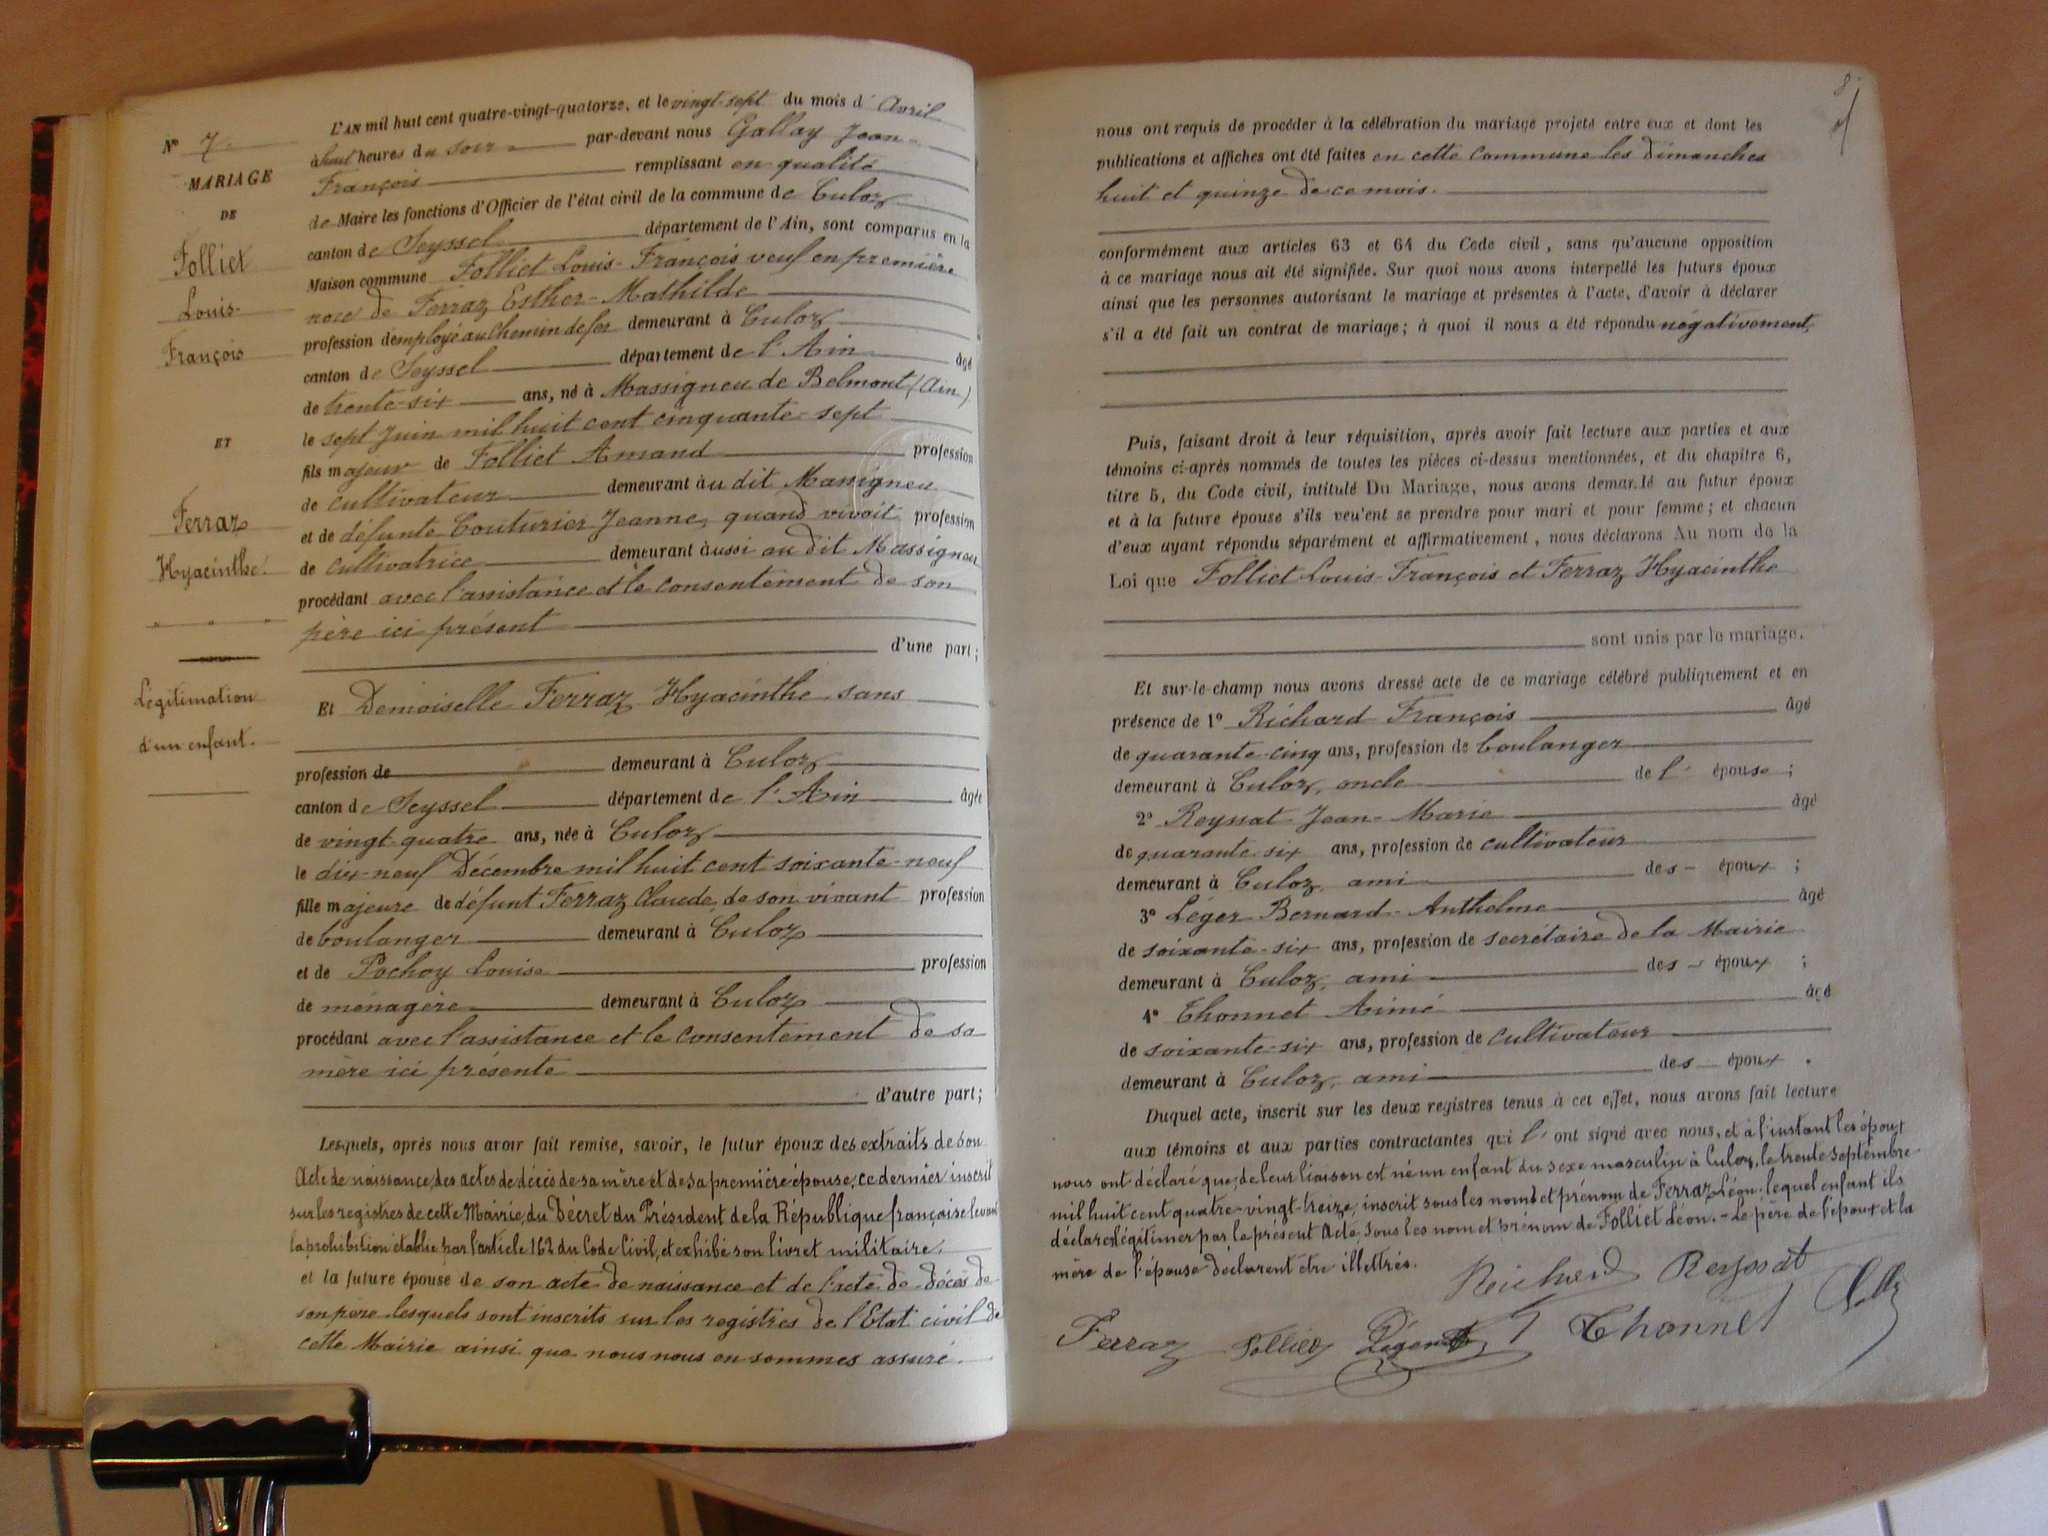 N° 7.
MARIAGE
DE
Folliet
Louis-
François
ET
Ferraz
Hyacinthe.
Légitimation
d'un enfant.
L'AN mil huit cent quatre-vingt-quatorze, et le vingt-sept du mois d'Avril
à huit heures du soir par-devant nous Gallay Jean-
François remplissant en qualité
de Maire les fonctions d'Officier de l'état civil de la commune de Culoz
canton de Seyssel département de l'Ain, sont comparus en la
Maison commune Folliet Louis-François veuf en première
noce de Ferraz Esther-Mathilde
profession d'employé au chemin de fer demeurant à Culoz
canton de Seyssel département de l'Ain âgé
de trente-six ans, né à Massigneu de Belmont (Ain)
le sept Juin mil huit cent cinquante-sept
fils majeur de Folliet Amand profession
de cultivateur demeurant au dit Massigneu
et de défunte Couturier Jeanne, quand vivait profession
de cultivatrice demeurant aussi au dit Massigneu
procédant avec l'assistance et le consentement de son
père ici présent
d'une part;
Et Demoiselle Ferraz Hyacinthe sans
profession de demeurant à Culoz
canton de Seyssel département de l'Ain âgée
de vingt-quatre ans, née à Culoz
le dix-neuf Décembre mil huit cent soixante-neuf
fille majeure de défunt Ferraz Claude, de son vivant profession
de boulanger demeurant à Culoz
et de Pochoy Louise profession
de ménagère demeurant à Culoz
procédant avec l'assistance et le consentement de sa
mère ici présente
d'autre part;
Lesquels, après nous avoir fait remise, savoir, le futur époux des extraits de son
Acte de naissance, des actes de décès de sa mère et de sa première épouse, ce dernier inscrit
sur les registres de cette Mairie, du Décret du Président de la République française levant
la prohibition établie par l'article 162 du Code Civil, et exhibé son livret militaire.
et la future épouse de son acte de naissance et de l'acte de décès de
son père lesquels sont inscrits sur les registres de l'Etat civil de
cette Mairie ainsi que nous nous en sommes assuré.
8
nous ont requis de procéder à la célébration du mariage projeté entre eux et dont les
publications et affiches ont été faites en cette commune les dimanches
huit et quinze de ce mois.
conformément aux articles 63 et 64 du Code civil, sans qu'aucune opposition
à ce mariage nous ait été signifiée. Sur quoi nous avons interpellé les futurs époux
ainsi que les personnes autorisant le mariage et présentes à l'acte, d'avoir à déclarer
s'il a été fait un contrat de mariage; à quoi il nous a été répondu négativement,
Puis, faisant droit à leur réquisition, après avoir fait lecture aux parties et aux
témoins ci-après nommés de toutes les pièces ci-dessus mentionnées, et du chapitre 6,
titre 5, du Code civil, intitulé Du Mariage, nous avons demandé au futur époux
et à la future épouse s'ils veulent se prendre pour mari et pour femme; et chacun
d'eux ayant répondu séparément et affirmativement, nous déclarons Au nom de la
Loi que Folliet Louis-François et Ferraz Hyacinthe
sont unis par le mariage.
Et sur-le-champ nous avons dressé acte de ce mariage célébré publiquement et en
présence de 1° Richard François âgé
de quarante-cinq ans, profession de boulanger
demeurant à Culoz, oncle de l'épouse;
2° Reyssat Jean-Marie âgé
de quarante-six ans, profession de cultivateur
demeurant à Culoz, ami des époux;
3° Léger Bernard-Anthelme âgé
de soixante-six ans, profession de secrétaire de la Mairie
demeurant à Culoz, ami des époux;
4° Thonnet Aimé âgé
de soixante-six ans, profession de cultivateur
demeurant à Culoz, ami des époux.
Duquel acte, inscrit sur les deux registres tenus à cet effet, nous avons fait lecture
aux témoins et aux parties contractantes qui l'ont signé avec nous, et à l'instant les époux
nous ont déclaré que, de leur liaison est né un enfant du sexe masculin à Culoz, le trente septembre
mil huit cent quatre-vingt-treize, inscrit sous les nom et prénom de Ferraz Léon; lequel enfant ils
déclarent légitimer par le présent Acte, sous les nom et prénom de Folliet Léon. - Le père de l'époux et la
mère de l'épouse déclarent être illettrés.
Richard Reyssat
Ferraz Folliet Léger Thonnet